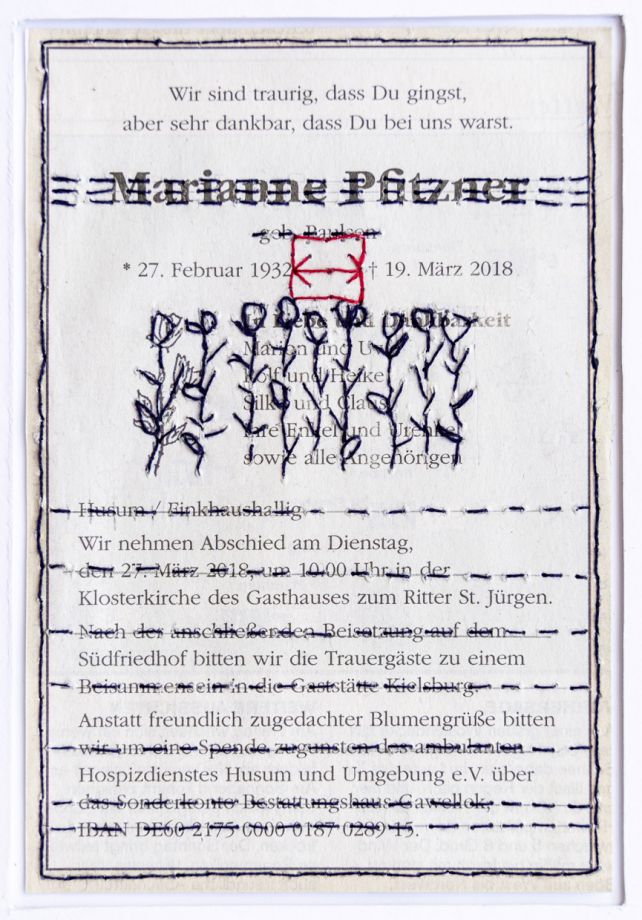 Wir sind traurig, dass Du gingst,
aber sehr dankbar, dass Du bei uns warst.
Marianne Pfitzner
geb. Paulsen
* 27. Februar 1932 † 19. März 2018
In Liebe und Dankbarkeit
Marion und Uwe
Rolf und Heike
Silke und Claus
Ihre Enkel und Urenkel
sowie alle Angehörigen
Husum / Finkhaushallig
Wir nehmen Abschied am Dienstag,
den 27. März 2018, um 10.00 Uhr in der
Klosterkirche des Gasthauses zum Ritter St. Jürgen.
Nach der anschließenden Beisetzung auf dem
Südfriedhof bitten wir die Trauergäste zu einem
Beisammensein in die Gaststätte Kielsburg.
Anstatt freundlich zugedachter Blumengrüße bitten
wir um eine Spende zugunsten des ambulanten
Hospizdienstes Husum und Umgebung e.V. über
das Sonderkonto Bestattungshaus Gawellek,
IBAN DE60 2175 0000 0187 0289 15.